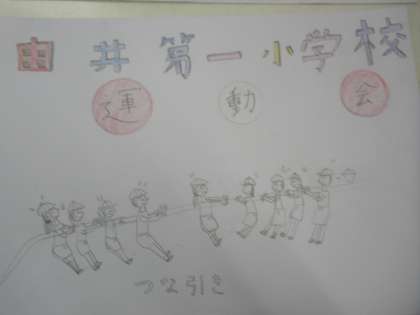 由井第一小学校
運動会
つな引き